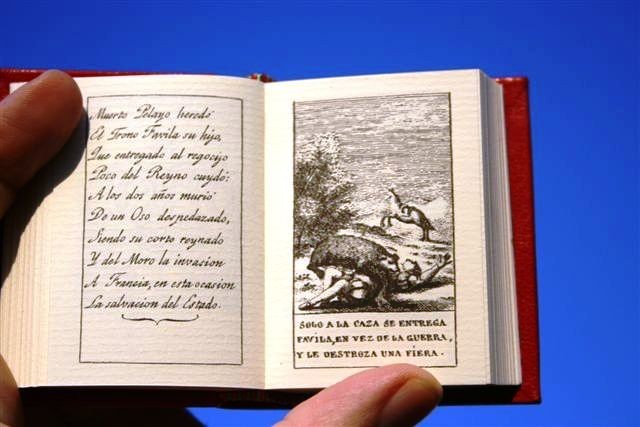 Muerto Pelayo heredó
El Trono Favila su hijo,
Que entregado al regocijo
Poco del Reyno cuydó:
A los dos años murió
De un Oso despedazado,
Siendo su corto reynado
Y del Moro la invacion
A Francia, en esta ocasion
La salvacion del Estado.
SOLO A LA CAZA SE ENTREGA
FAVILA, EN VEZ DE LA GUERRA,
Y LE DESTROZA UNA FIERA.